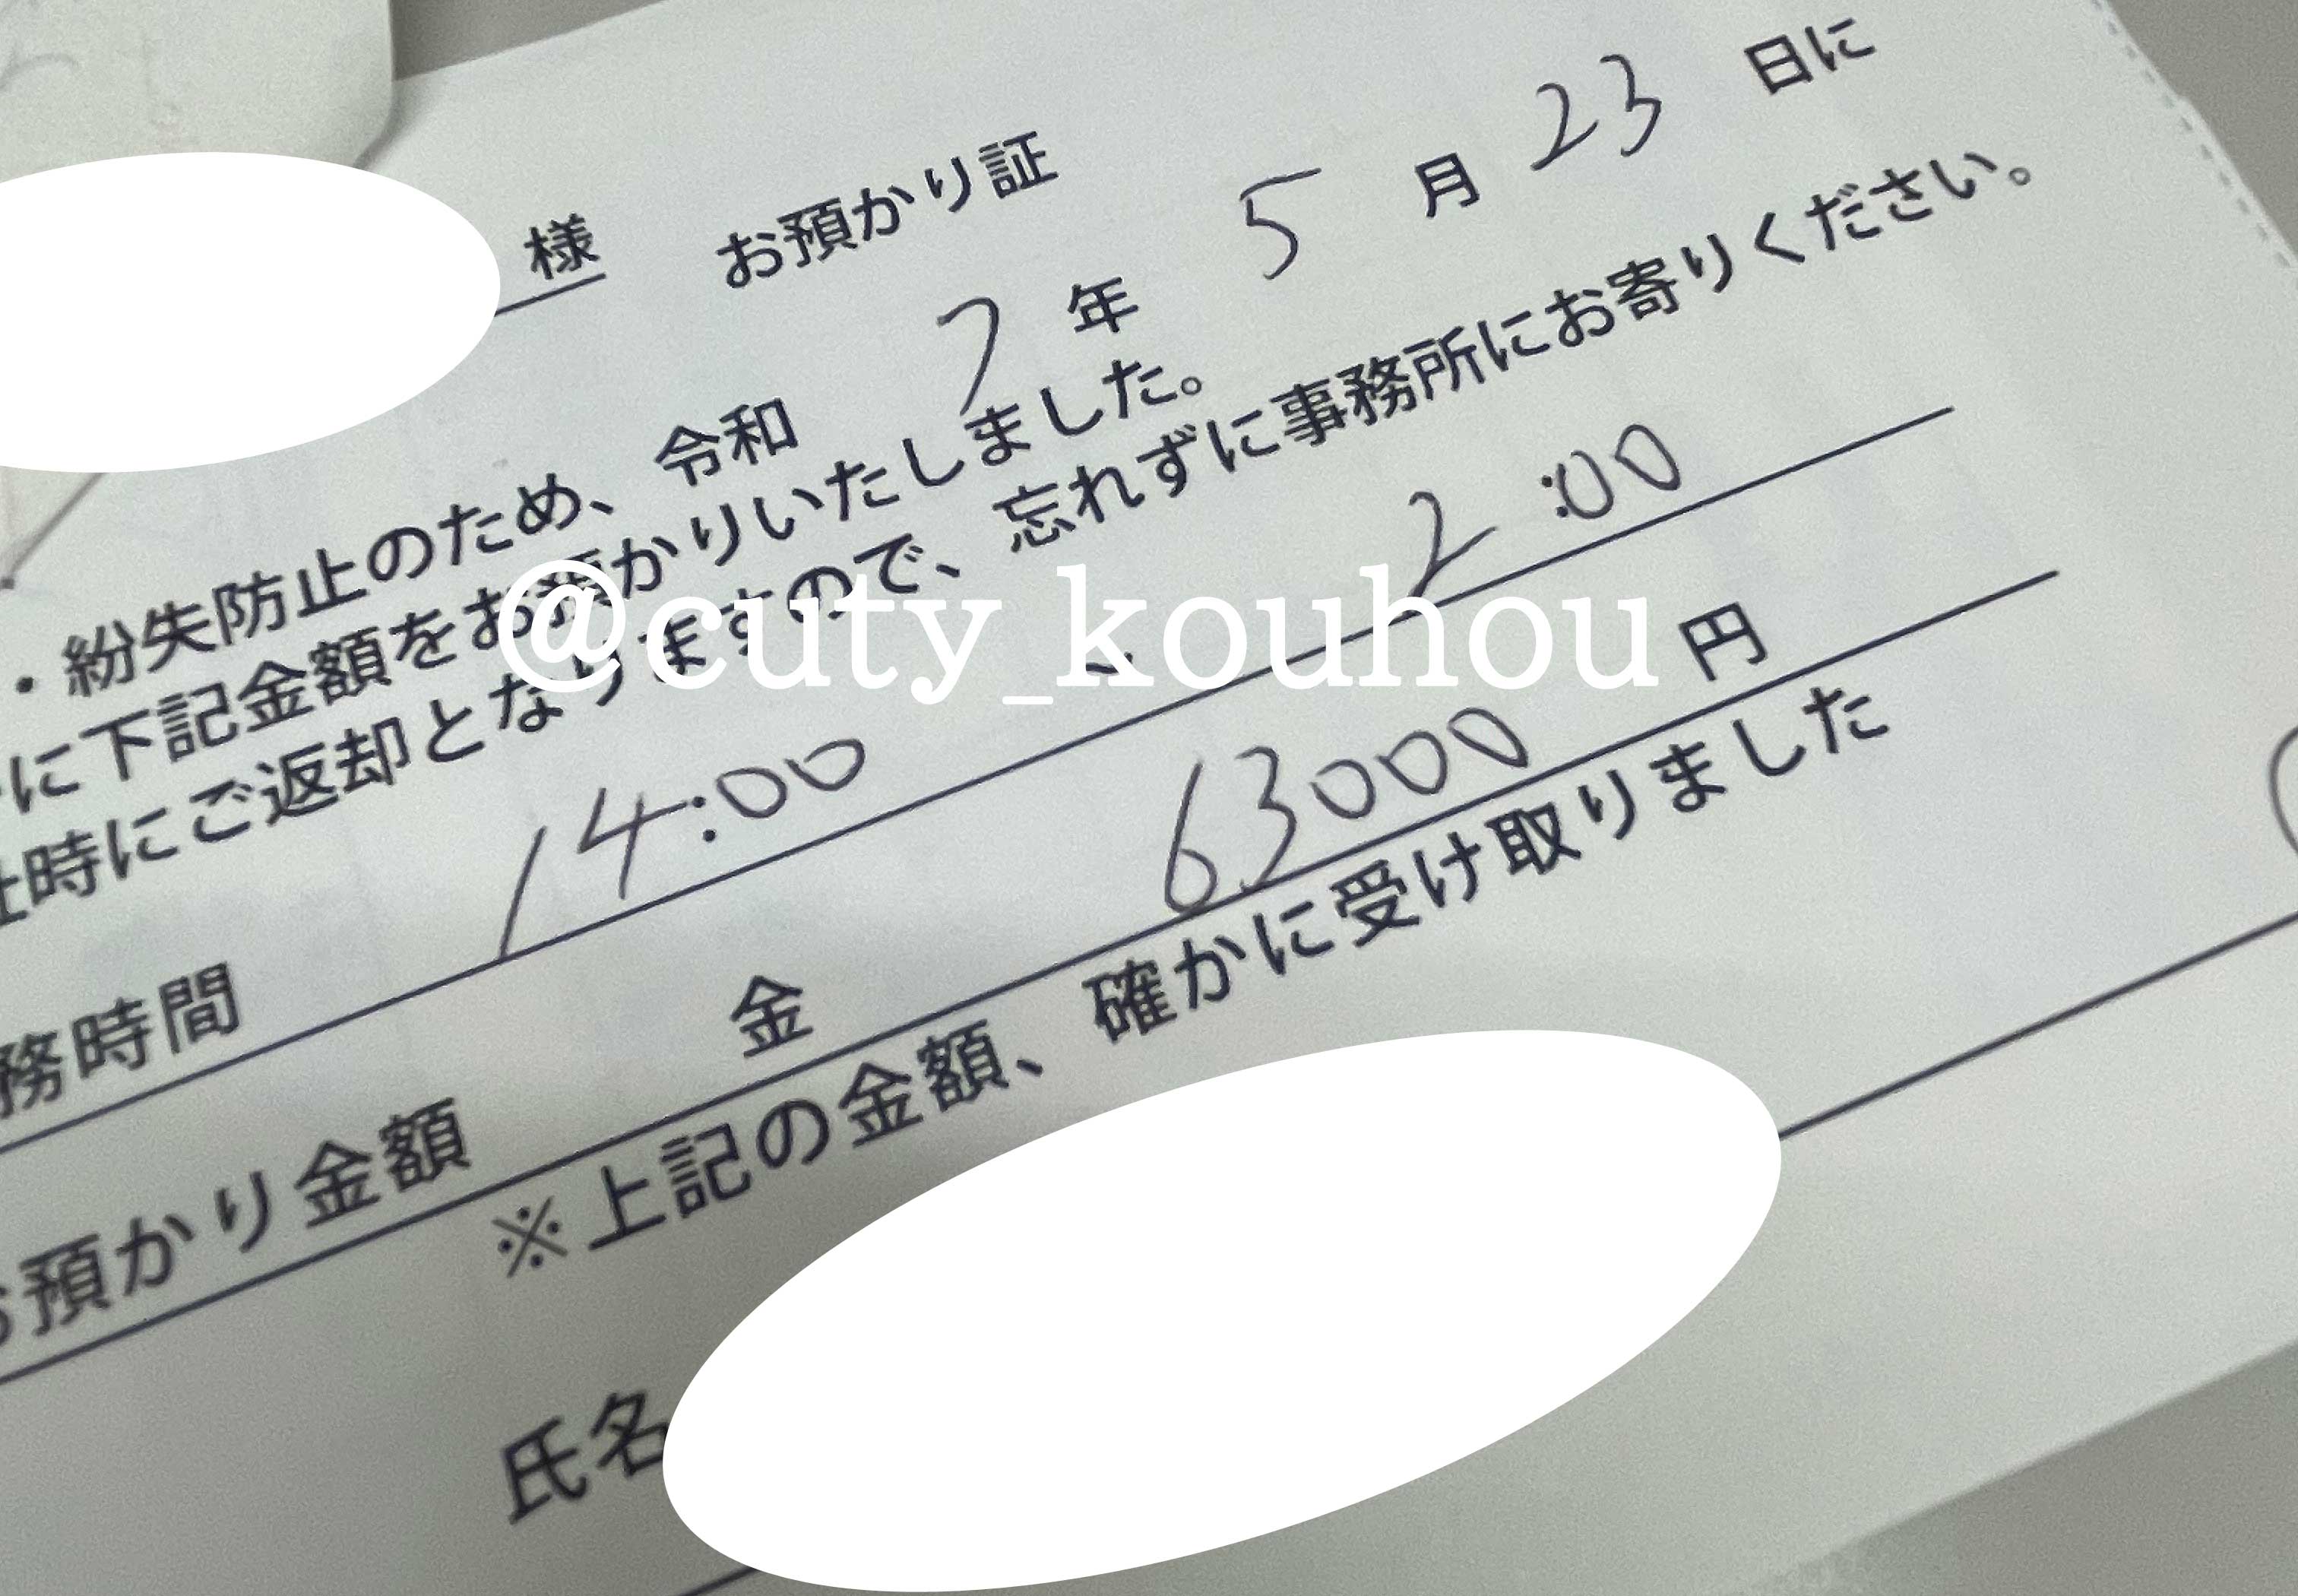 様 お預かり証
・紛失防止のため、令和 7 年 5 月 23 日に
に下記金額をお預かりいたしました。
時にご返却となりますので、忘れずに事務所にお寄りください。
務時間 14:00 〜 2:00
お預かり金額 金 63000 円
※上記の金額、確かに受け取りました
氏名
@cuty_kouhou